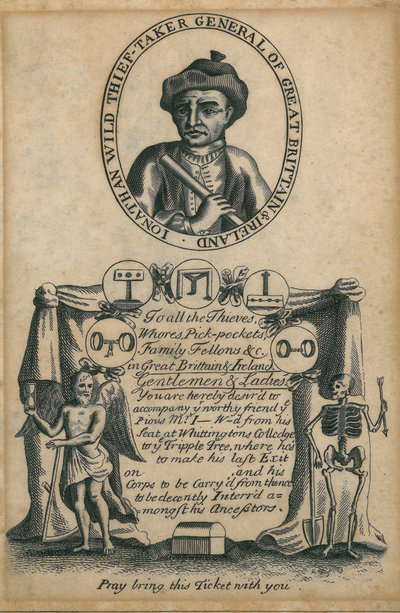 IONATHAN WILD THIEF-TAKER GENERAL OF GREAT BRITTAIN & IRELAND ·
To all the Thieves,
Whores, Pick-pockets,
Family Fellons &c.
in Great Brittain & Ireland,
Gentlemen & Ladies
You are hereby desir'd to
accompany yr worthy friend ye
Pious Mr. I— W–d from his
Seat at Whittingtons Colledge
to ye Tripple Tree, where he's
to make his last Exit
on , and his
Corps to be Carry'd from thence
to be decently Interr'd a=
mongst his Ancestors.
Pray bring this Ticket with you